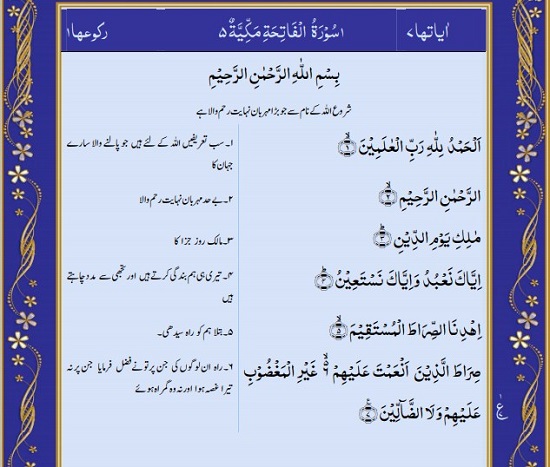 اٰیاتھا ۷ ۱ سُوۡرَۃُ الۡفَاتِحَۃِ مَکِّیَّۃٌ ۵ رکوعھا ۱
بِسۡمِ اللّٰہِ الرَّحۡمٰنِ الرَّحِیۡمِ
شروع اللہ کے نام سے جو بڑا مہربان نہایت رحم والا ہے
اَلۡحَمۡدُ لِلّٰہِ رَبِّ الۡعٰلَمِیۡنَ ۙ﴿۱﴾
۱۔ سب تعریفیں اللہ کے لئے ہیں جو پالنے والا سارے
جہان کا
الرَّحۡمٰنِ الرَّحِیۡمِ ۙ﴿۲﴾
۲۔ بے حد مہربان نہایت رحم والا
مٰلِکِ یَوۡمِ الدِّیۡنِ ؕ﴿۳﴾
۳۔ مالک روز جزا کا
اِیَّاکَ نَعۡبُدُ وَ اِیَّاکَ نَسۡتَعِیۡنُ ؕ﴿۴﴾
۴۔ تیری ہی ہم بندگی کرتے ہیں اور تجھی سے مدد چاہتے
ہیں
اِہۡدِ نَا الصِّرَاطَ الۡمُسۡتَقِیۡمَ ۙ﴿۵﴾
۵۔ بتلا ہم کو راہ سیدھی۔
صِرَاطَ الَّذِیۡنَ اَنۡعَمۡتَ عَلَیۡہِمۡ ۙ۬ۦ غَیۡرِ الۡمَغۡضُوۡبِ
عَلَیۡہِمۡ وَ لَا الضَّآلِّیۡنَ ﴿۷﴾
۶۔ راہ ان لوگوں کی جن پر تو نے فضل فرمایا جن پر نہ
تیرا غصہ ہوا اور نہ وہ گمراہ ہوئے
ع